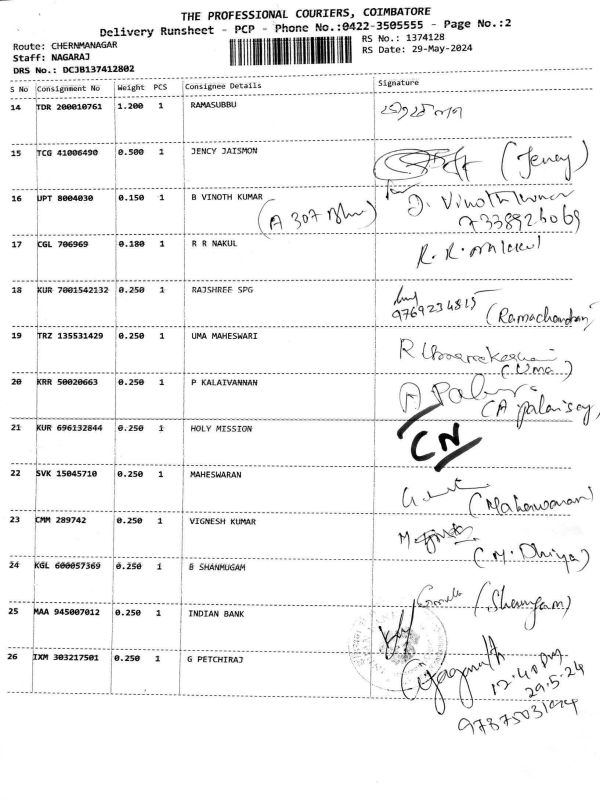 THE PROFESSIONAL COURIERS, COIMBATORE
Delivery Runsheet - PCP - Phone No.:0422-3505555 - Page No.:2
Route: CHERNMANAGAR
RS No.: 1374128
Staff: NAGARAJ
RS Date: 29-May-2024
DRS No.: DCJB137412802
S No Consignment No Weight PCS Consignee Details Signature
14 TDR 200010761 1.200 1 RAMASUBBU
15 TCG 41006490 0.500 1 JENCY JAISMON (Jency)
16 UPT 8004030 0.150 1 B VINOTH KUMAR
(A 307 J. Vinoth Kumar
17 CGL 706969 0.180 1 R R NAKUL R. R.
18 KUR 7001542132 0.250 1 RAJSHREE SPG
9769234815 (Ramachandran)
19 TRZ 135531429 0.250 1 UMA MAHESWARI
(Uma)
20 KRR 50020663 0.250 1 P KALAIVANNAN
(A palanisay
21 KUR 696132844 0.250 1 HOLY MISSION CN
22 SVK 15045710 0.250 1 MAHESWARAN
(Maheswaran)
23 CMM 289742 0.250 1 VIGNESH KUMAR
(M. Dhiya)
24 KGL 600057369 0.250 1 B SHANMUGAM
(Shamgam)
25 MAA 945007012 0.250 1 INDIAN BANK
26 IXM 303217501 0.250 1 G PETCHIRAJ Jaganath
12.40 pm.
29.5.24